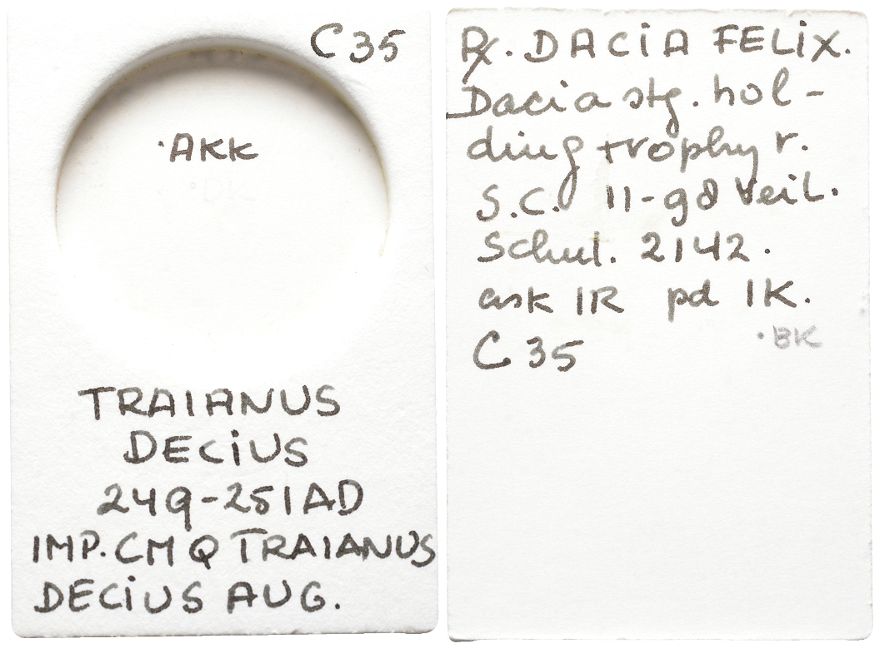 C 35
·AKK
TRAIANUS
DECIUS
249-251AD
IMP. CM Q TRAIANUS
DECIUS AUG.
R. DACIA FELIX.
Dacia stg. hol-
ding trophy r.
S.C. 11-98 Veil.
Schul. 2142.
ask 1R pd 1K.
·BK
C 35